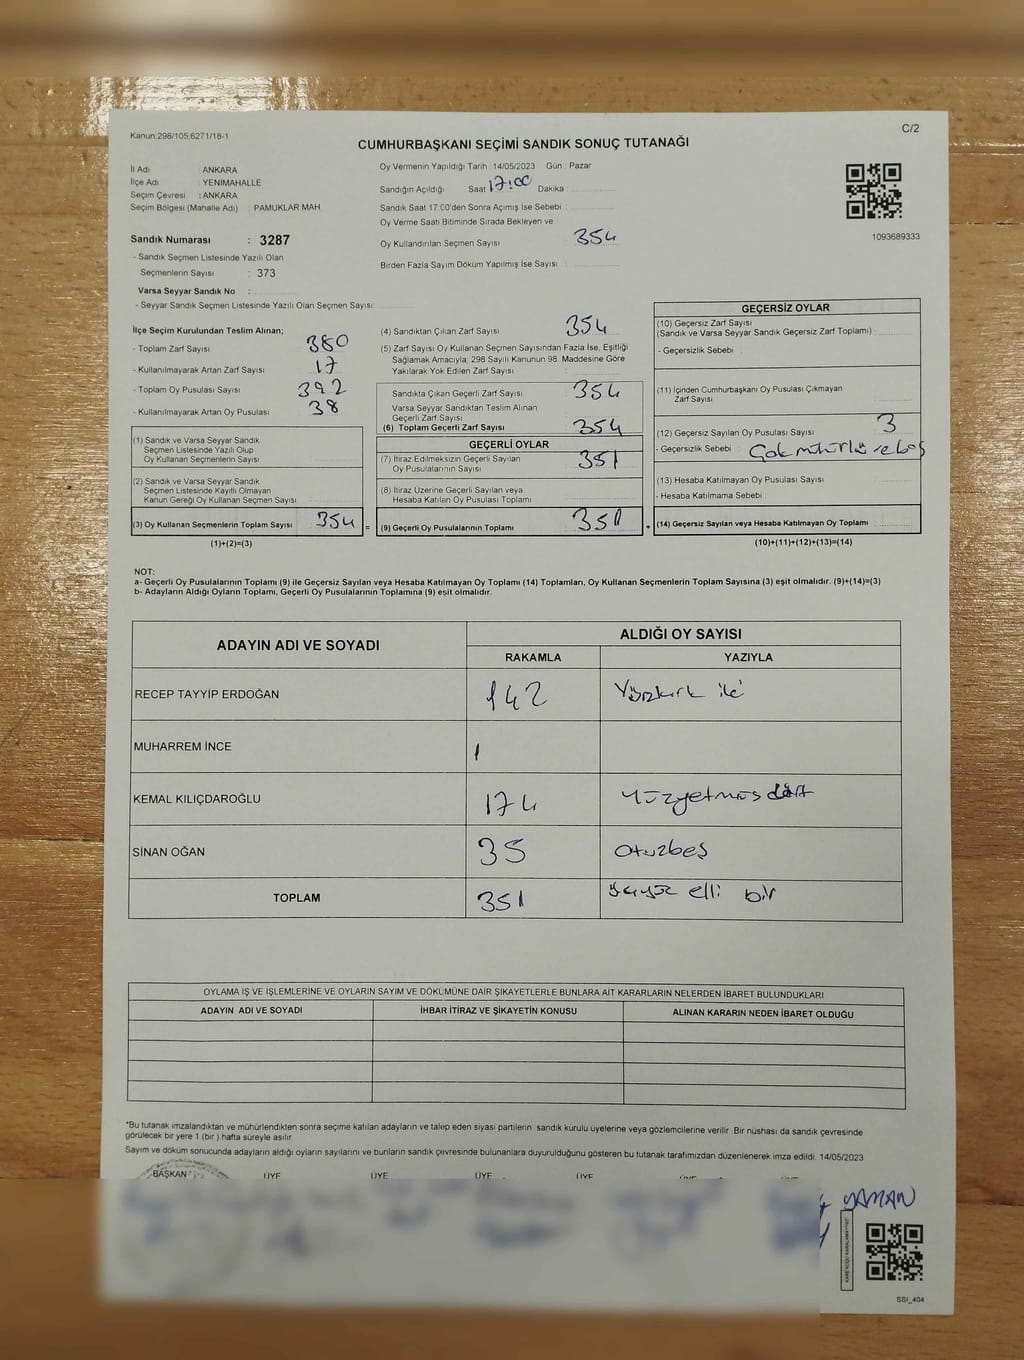 Kanun:298/105;6271/18-1
C/2
CUMHURBAŞKANI SEÇİMİ SANDIK SONUÇ TUTANAĞI
İl Adı : ANKARA
İlçe Adı : YENİMAHALLE
Seçim Çevresi : ANKARA
Seçim Bölgesi (Mahalle Adı) : PAMUKLAR MAH
Sandık Numarası : 3287
- Sandık Seçmen Listesinde Yazılı Olan
Seçmenlerin Sayısı : 373
Varsa Seyyar Sandık No :
- Seyyar Sandık Seçmen Listesinde Yazılı Olan Seçmen Sayısı:
Oy Vermenin Yapıldığı Tarih :14/05/2023 Gün : Pazar
Sandığın Açıldığı Saat 17:00 Dakika :
Sandık Saat 17:00'den Sonra Açımış İse Sebebi :
Oy Verme Saati Bitiminde Sırada Bekleyen ve
Oy Kullandırılan Seçmen Sayısı : 354
Birden Fazla Sayım Döküm Yapılmış İse Sayısı :
1093689333
İlçe Seçim Kurulundan Teslim Alınan;
- Toplam Zarf Sayısı : 380
- Kullanılmayarak Artan Zarf Sayısı : 17
- Toplam Oy Pusulası Sayısı : 392
- Kullanılmayarak Artan Oy Pusulası : 38
(1) Sandık ve Varsa Seyyar Sandık
Seçmen Listesinde Yazılı Olup
Oy Kullanan Seçmenlerin Sayısı :
(2) Sandık ve Varsa Seyyar Sandık
Seçmen Listesinde Kayıtlı Olmayan
Kanun Gereği Oy Kullanan Seçmen Sayısı :
(3) Oy Kullanan Seçmenlerin Toplam Sayısı : 354 =
(1)+(2)=(3)
(4) Sandıktan Çıkan Zarf Sayısı : 354
(5) Zarf Sayısı Oy Kullanan Seçmen Sayısından Fazla İse, Eşitliği
Sağlamak Amacıyla; 298 Sayılı Kanunun 98. Maddesine Göre
Yakılarak Yok Edilen Zarf Sayısı :
Sandıkta Çıkan Geçerli Zarf Sayısı : 354
Varsa Seyyar Sandıktan Teslim Alınan
Geçerli Zarf Sayısı :
(6) Toplam Geçerli Zarf Sayısı : 354
GEÇERLİ OYLAR
(7) İtiraz Edilmeksizin Geçerli Sayılan
Oy Pusulalarının Sayısı : 351
(8) İtiraz Üzerine Geçerli Sayılan veya
Hesaba Katılan Oy Pusulası Toplamı :
(9) Geçerli Oy Pusulalarının Toplamı : 351 +
GEÇERSİZ OYLAR
(10) Geçersiz Zarf Sayısı
(Sandık ve Varsa Seyyar Sandık Geçersiz Zarf Toplamı) :
- Geçersizlik Sebebi :
(11) İçinden Cumhurbaşkanı Oy Pusulası Çıkmayan
Zarf Sayısı :
(12) Geçersiz Sayılan Oy Pusulası Sayısı : 3
- Geçersizlik Sebebi : Çok mühürlü ve boş
(13) Hesaba Katılmayan Oy Pusulası Sayısı :
- Hesaba Katılmama Sebebi :
(14) Geçersiz Sayılan veya Hesaba Katılmayan Oy Toplamı :
(10)+(11)+(12)+(13)=(14)
NOT:
a- Geçerli Oy Pusulalarının Toplamı (9) ile Geçersiz Sayılan veya Hesaba Katılmayan Oy Toplamı (14) Toplamları, Oy Kullanan Seçmenlerin Toplam Sayısına (3) eşit olmalıdır. (9)+(14)=(3)
b- Adayların Aldığı Oyların Toplamı, Geçerli Oy Pusulalarının Toplamına (9) eşit olmalıdır.
ADAYIN ADI VE SOYADI ALDIĞI OY SAYISI
RAKAMLA YAZIYLA
RECEP TAYYİP ERDOĞAN 142 Yüzkırk iki
MUHARREM İNCE 1
KEMAL KILIÇDAROĞLU 174 Yüzyetmiş dört
SİNAN OĞAN 35 Otuzbeş
TOPLAM 351 üçyüz elli bir
OYLAMA İŞ VE İŞLEMLERİNE VE OYLARIN SAYIM VE DÖKÜMÜNE DAİR ŞİKAYETLERLE BUNLARA AİT KARARLARIN NELERDEN İBARET BULUNDUKLARI
ADAYIN ADI VE SOYADI İHBAR İTİRAZ VE ŞİKAYETİN KONUSU ALINAN KARARIN NEDEN İBARET OLDUĞU
*Bu tutanak imzalandıktan ve mühürlendikten sonra seçime katılan adayların ve talep eden siyasi partilerin sandık kurulu üyelerine veya gözlemcilerine verilir. Bir nüshası da sandık çevresinde
görülecek bir yere 1 (bir ) hafta süreyle asılır.
Sayım ve döküm sonucunda adayların aldığı oyların sayılarını ve bunların sandık çevresinde bulunanlara duyurulduğunu gösteren bu tutanak tarafımızdan düzenlenerek imza edildi. 14/05/2023
BAŞKAN ÜYE ÜYE ÜYE ÜYE ÜYE ÜYE
YAMAN
SSI_404